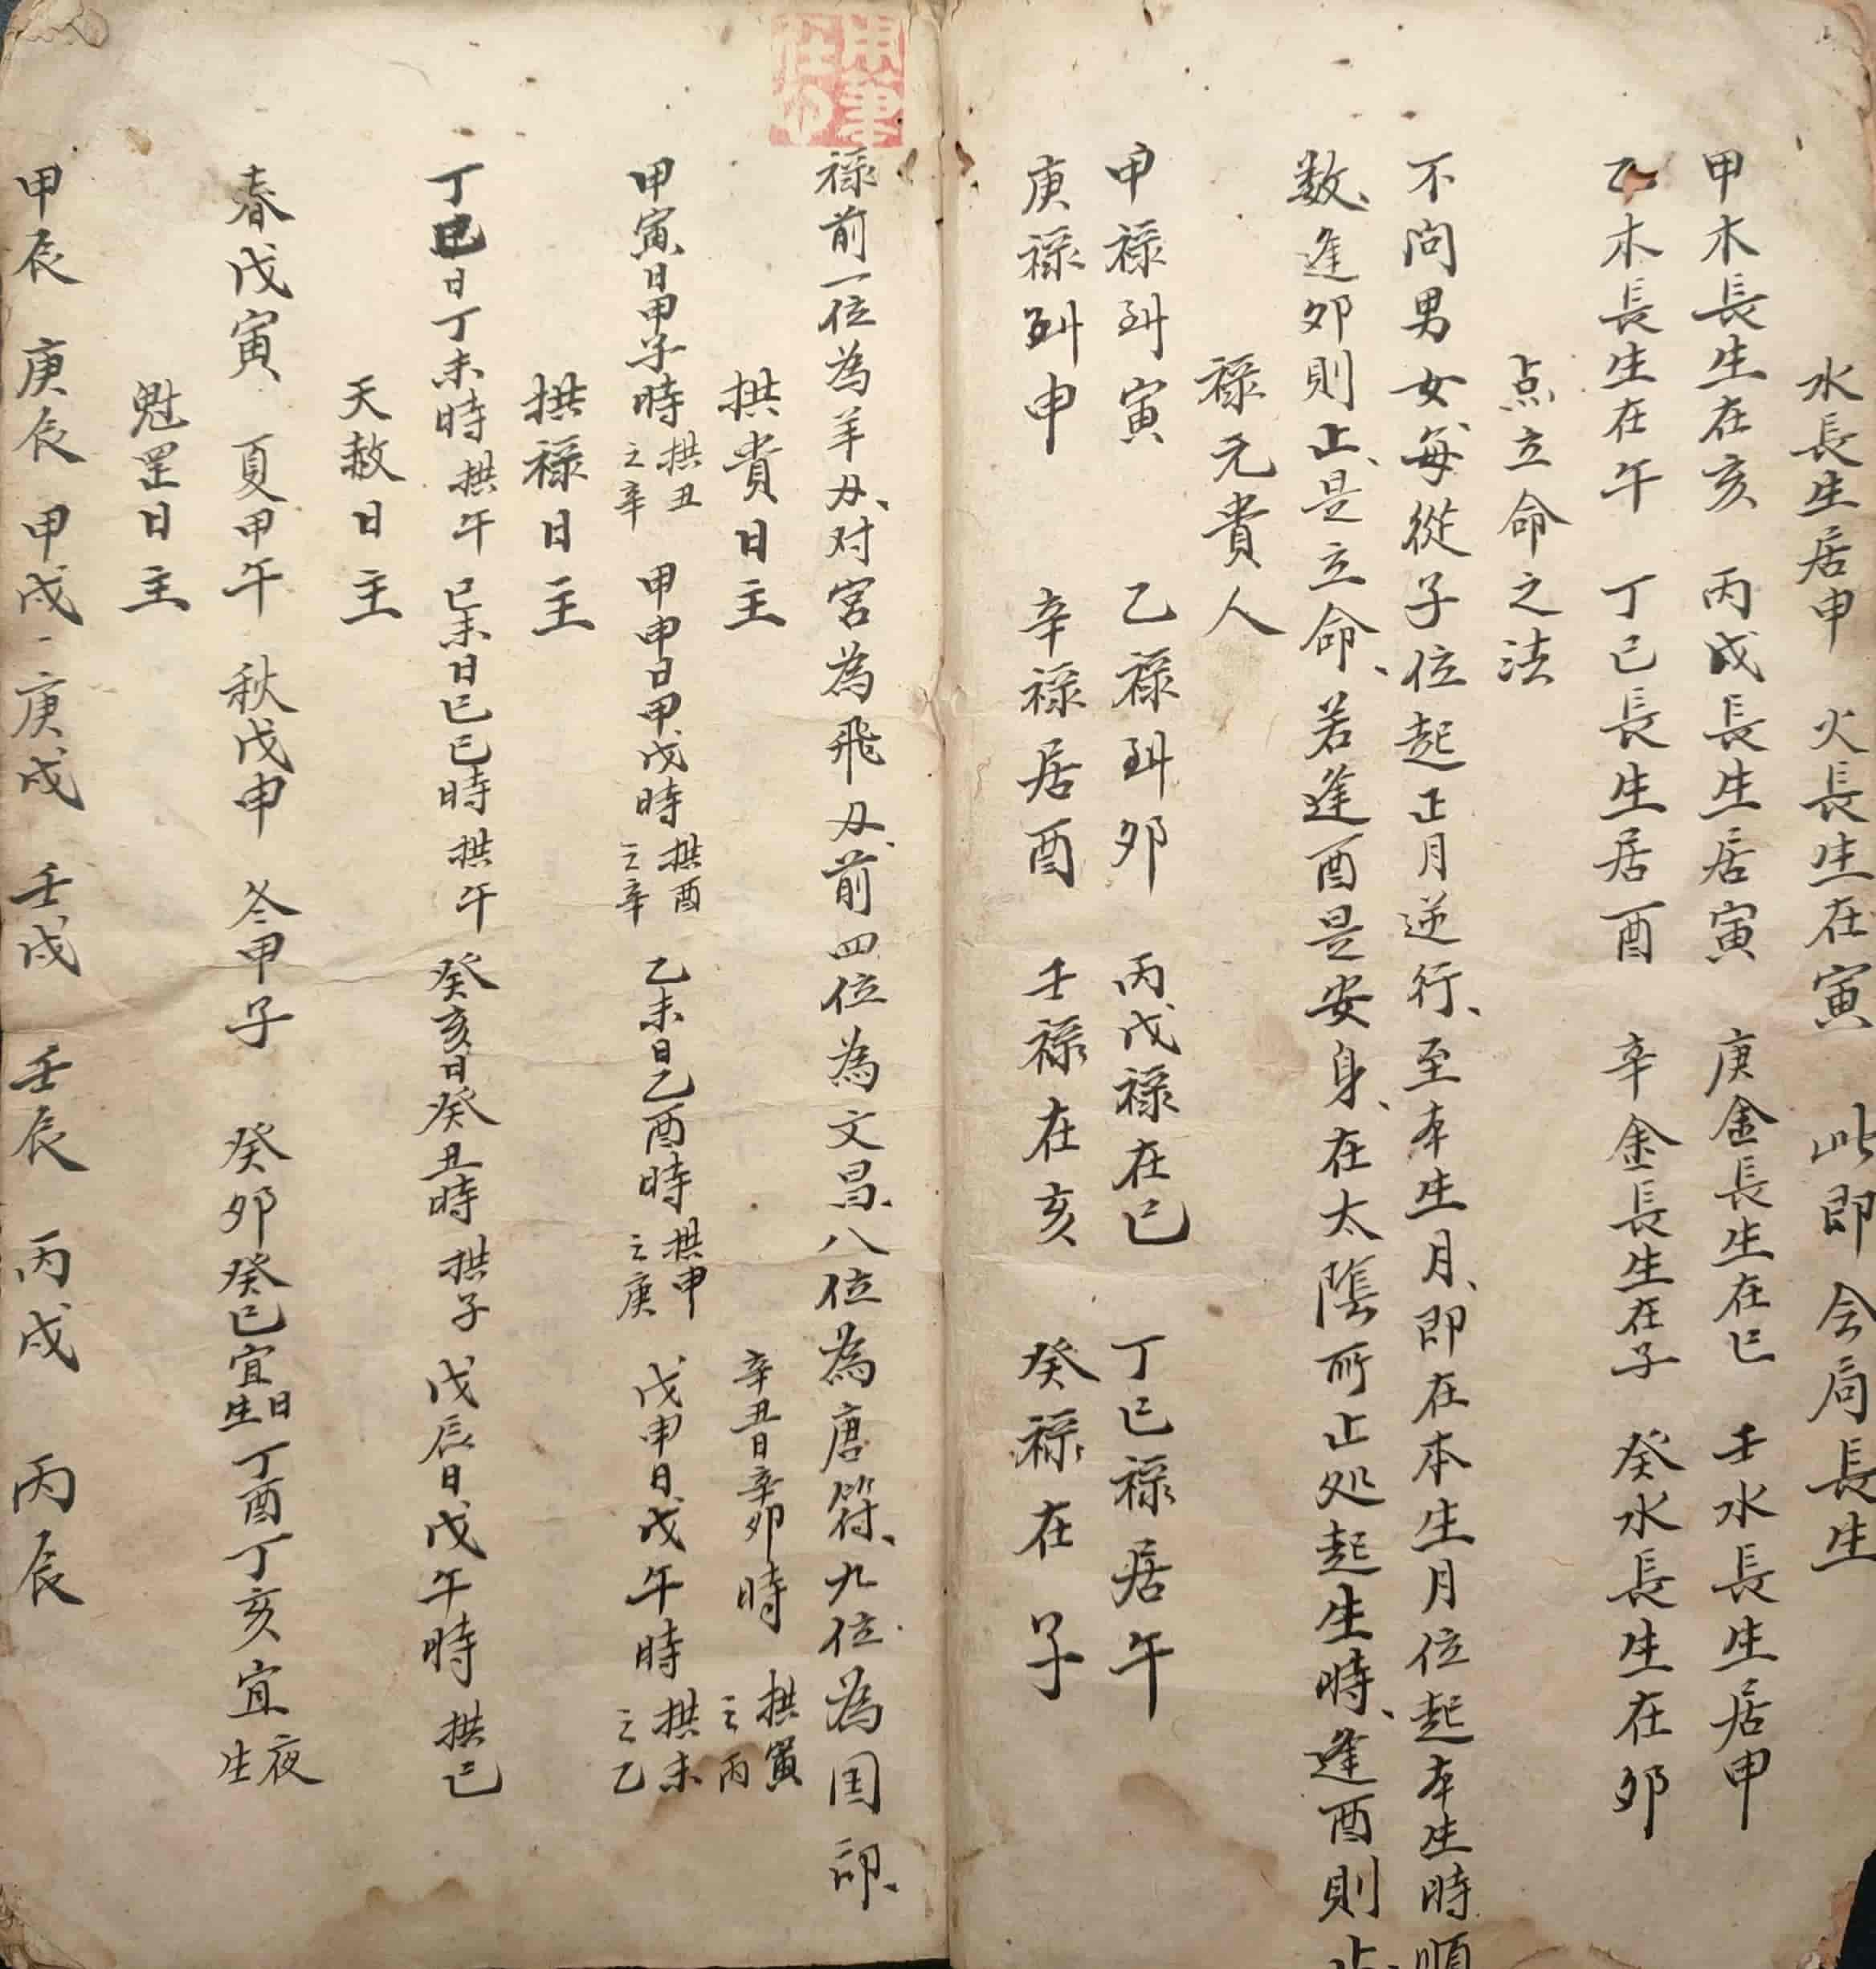 水長生居申 火長生在寅 此即會局長生
甲木長生在亥 丙戊長生居寅 庚金長生在巳 壬水長生居申
乙木長生在午 丁己長生居酉 辛金長生在子 癸水長生在卯
点立命之法
不问男女、每從子位起正月逆行、至本生月、即在本生月位起本生時順
数、逢卯則止、是立命、若逢酉是安身、在太陰所止处起生時、逢酉則止、
禄元貴人
甲禄到寅 乙禄到卯 丙戊禄在巳 丁己禄居午
庚禄到申 辛禄居酉 壬禄在亥 癸禄在子
禄前一位為羊刃、对宮為飛刃、前四位為文昌、八位為唐符、九位為国印、
拱貴日主 辛丑日辛卯時 拱寅之丙
甲寅日甲子時 拱丑之辛 甲申日甲戌時 拱酉之辛 乙未日乙酉時 拱申之庚 戊申日戊午時 拱未之乙
拱禄日主
丁巳日丁未時 拱午 己未日己巳時 拱午 癸亥日癸丑時 拱子 戊辰日戊午時 拱巳
天赦日主
春戊寅 夏甲午 秋戊申 冬甲子 癸卯癸巳宜日生 丁酉丁亥宜夜生
魁罡日主
甲辰 庚辰 甲戌、庚戌 壬戌 壬辰 丙戌 丙辰